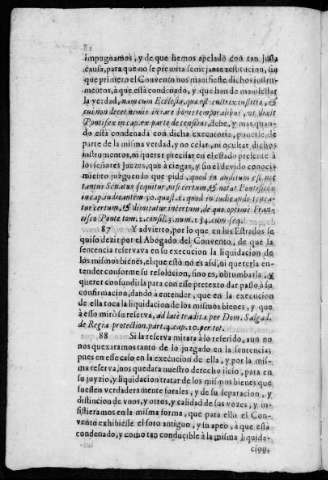 impugnamos, y de que hemos apelado con tan justa
causa, para que no se permita semejante restitucion, sin
que primero el Convento nos manifieste dichos instru-
mentos, à que està condenado, y que han de manifestar
la verdad,
Pontifex incapax parte de censuras, debe, y mas quan-
do està condenada con dicha executoria, parte de
parte de la misma verdad, y no celar, ni ocultar dichos
instrumentos, ni querer precisar en el estado presente à
los señores Juezes, que à ciegas, y sin el devido conoci-
miento juzguen lo que pide, quod in auditum est, nec
tantus Senatus sequitur
incap. audientem 30. quæst. 5. quod in iudicando
tur certum, & dimittatur incertum, de que optimè Fran-
cisco Ponte tom. 2. consil. 73. num. 134. cum seqq.
87 Y advierto, por lo que en los Estrados se
quiso dezir por el Abogado del Convento, de que la
sentencia reservava en su execucion la liquidacion de
los mismos bienes, el que està no es assi, ni que tenia en-
tender conforme su resolucion, sino es, obtumbarla, y
querer confundirla para con esse pretexto dar passo à su
confirmacion, dando à entender, que en la execucion
de ella toca la liquidacion de los mismos bienes, y que
à esso mirò su reserva, ad latè tradita per Dom. Salgad.
de Regia protection. part. 4. cap. 10. per tot.
88 Si la reserva mirara à lo referido, aun no
nos quexaramos tanto de lo juzgado en la sentencia;
pues en esse caso en la execucion de ella, y por la mis-
ma reserva, nos quedara nuestro derecho ileso, para en
su juyzio, y liquidacion tratar de los mismos bienes que
fuessen verdaderamente forales, y de su separacion, y
distincion de vnos, y otros, y calidad de las vozes, y in-
sistieramos en la misma forma, que para ello el Con-
vento exhibiesse el foro antiguo, y su apeo, à que està
condenado, y como tan conducible à la misma liquida-
cion,